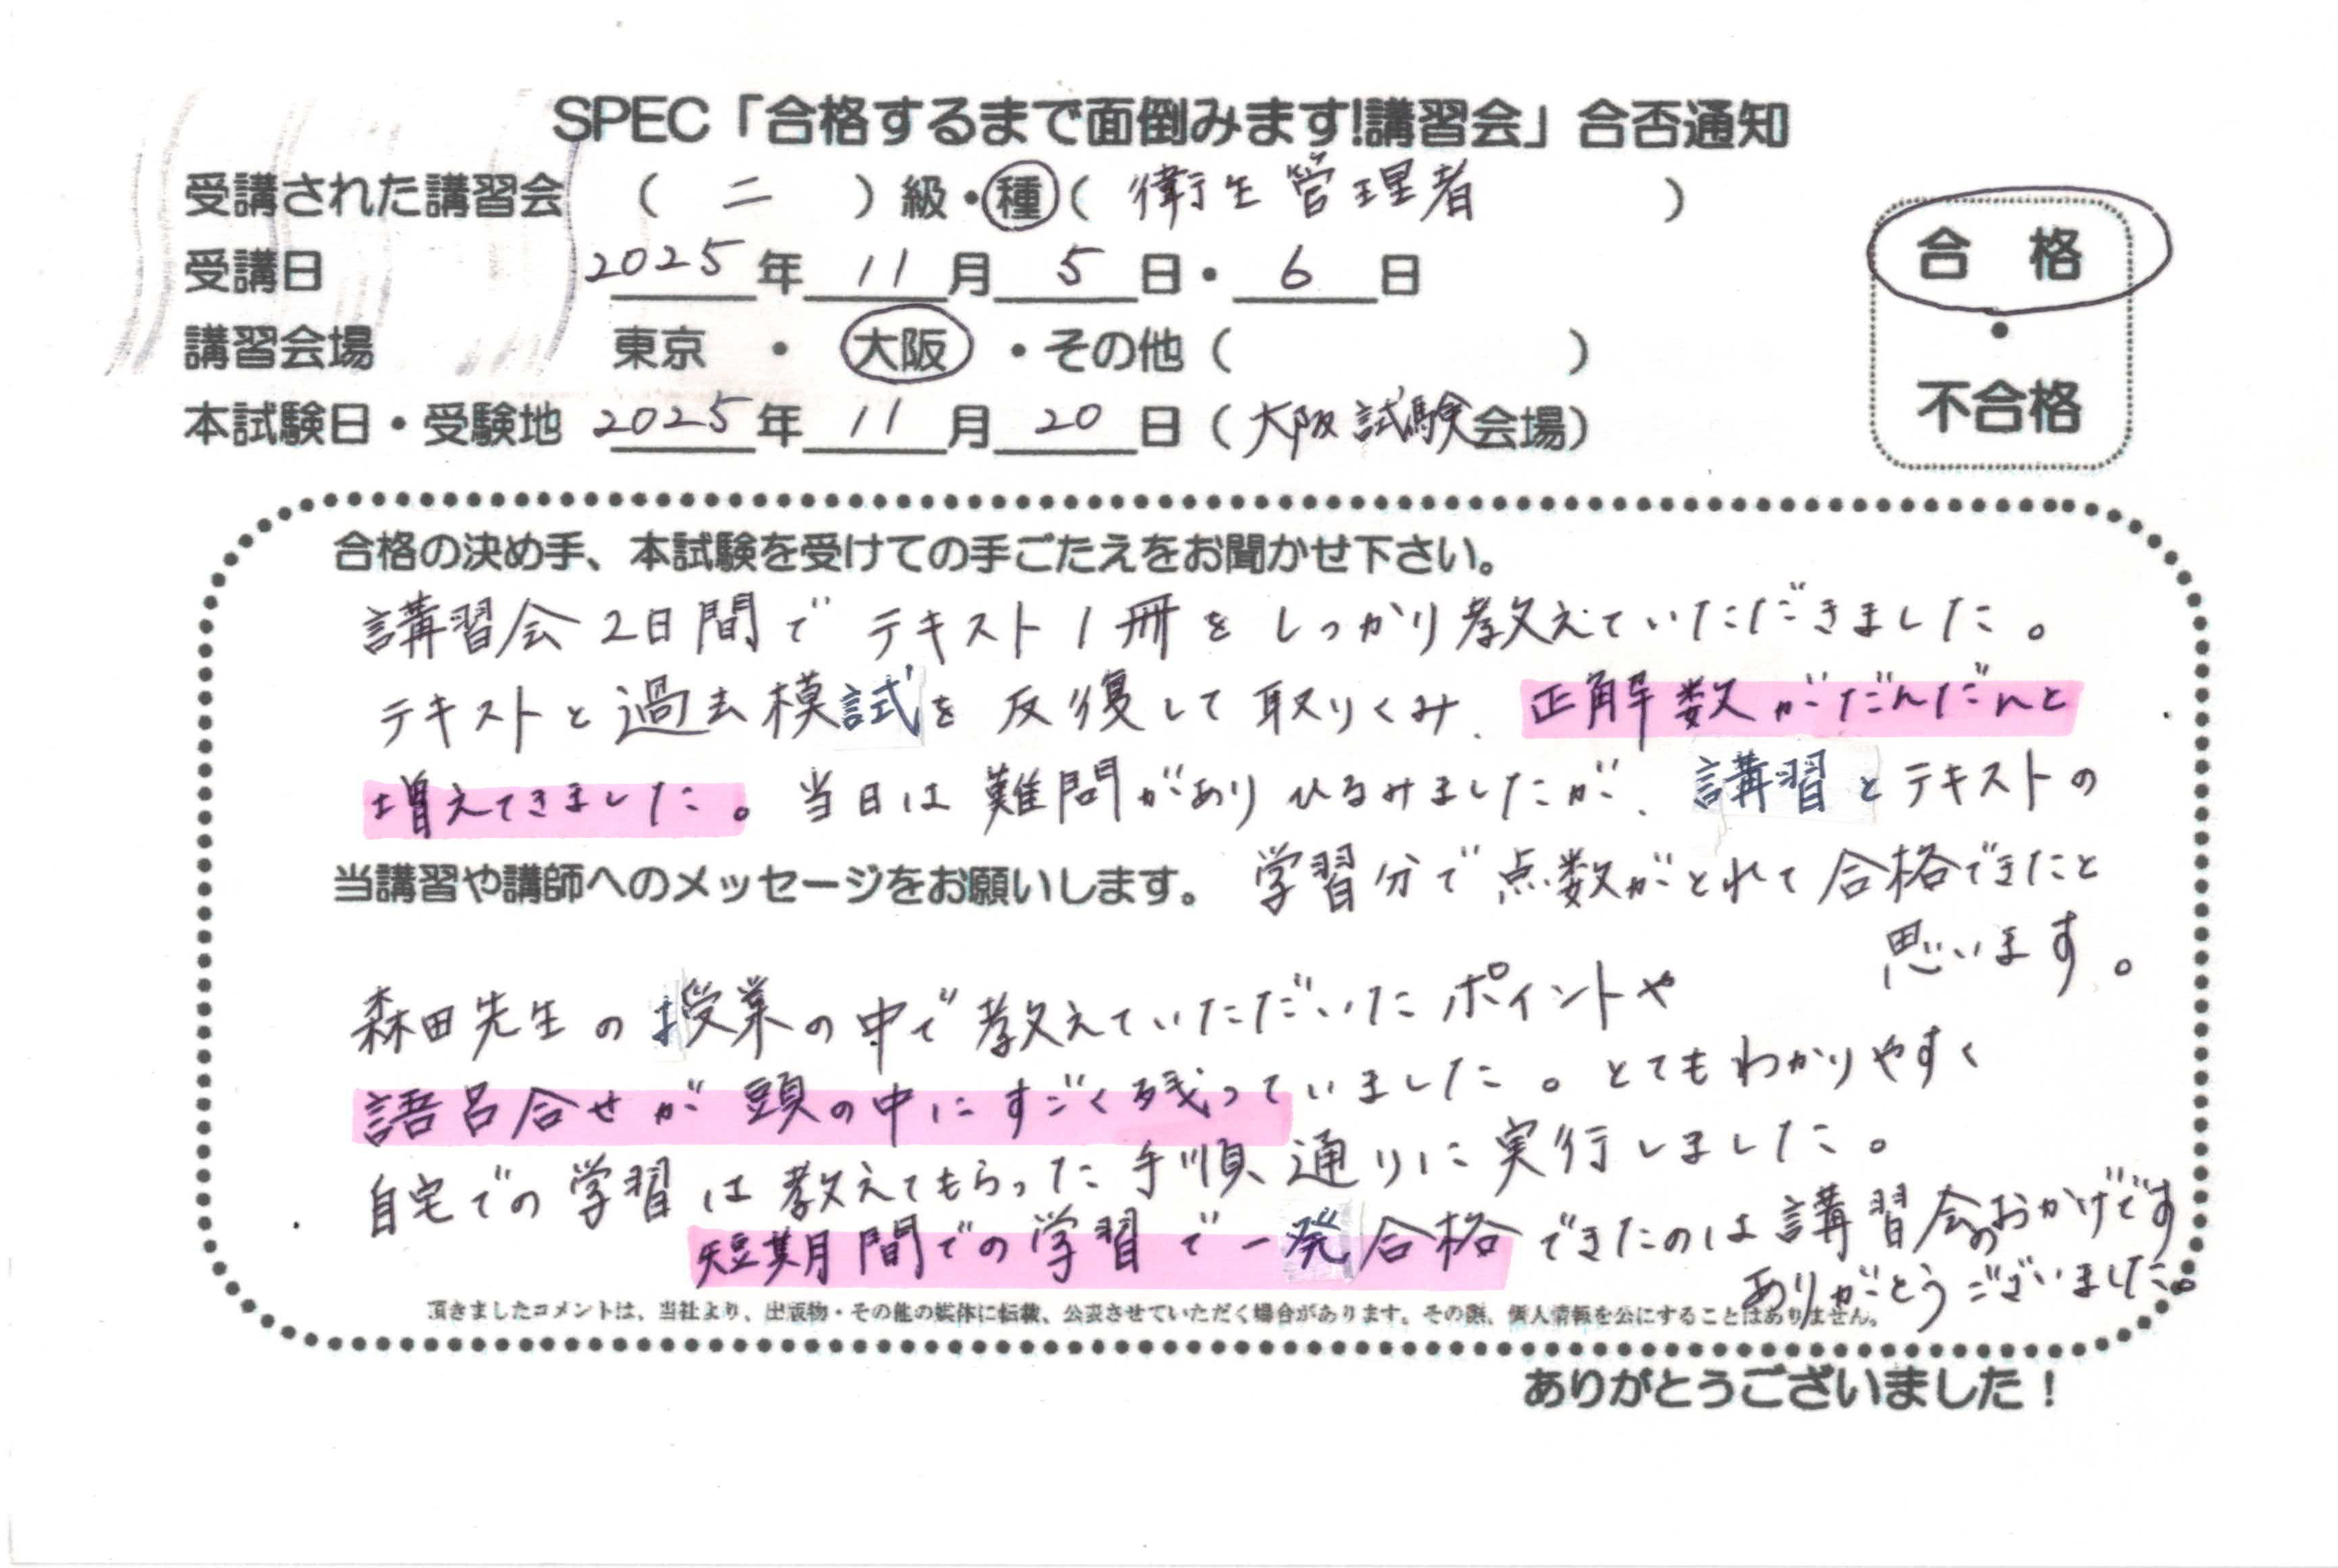 SPEC「合格するまで面倒みます!講習会」合否通知
受講された講習会 （ 二 ）級・種（ 衛生管理者 ）
受講日 2025年 11月 5日・ 6日
講習会場 東京 ・ 大阪 ・その他（ ）
本試験日・受験地 2025年 11月 20日（大阪試験会場）
合格
・
不合格
合格の決め手、本試験を受けての手ごたえをお聞かせ下さい。
講習会2日間で テキスト1冊を しっかり教えていただきました。
テキストと過去模試を 反復して取りくみ、正解数がだんだんと
増えてきました。当日は難問がありひるみましたが、講習とテキストの
学習分で点数がとれて合格できたと
思います。
当講習や講師へのメッセージをお願いします。
森田先生の授業の中で教えていただいたポイントや
語呂合せが頭の中にすごく残っていました。とてもわかりやすく
自宅での学習は教えてもらった手順通りに実行しました。
短期間での学習で一発合格できたのは講習会のおかげです
ありがとうございました。
頂きましたコメントは、当社より、出版物・その他の媒体に転載、公表させていただく場合があります。その際、個人情報を公にすることはありません。
ありがとうございました！